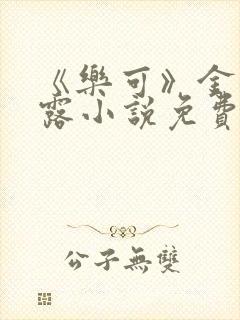 《樂可》金
露小說免費
公子無雙